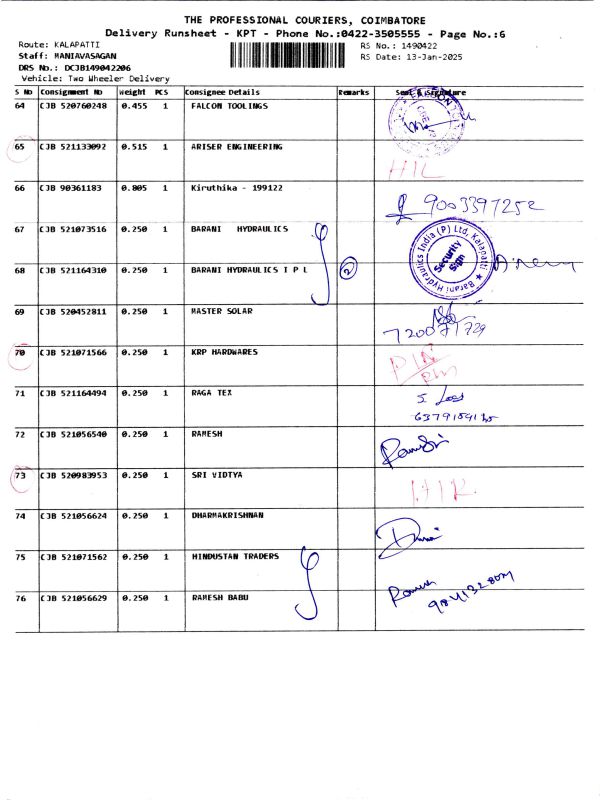 THE PROFESSIONAL COURIERS, COIMBATORE
Delivery Runsheet - KPT - Phone No.:0422-3505555 - Page No.:6
Route: KALAPATTI
RS No.: 1490422
Staff: MANIAVASAGAN
RS Date: 13-Jan-2025
DRS No.: DCJB149042206
Vehicle: Two Wheeler Delivery
S No Consignment No Weight PCS Consignee Details Remarks Seal & Signature
64 CJB 520760248 0.455 1 FALCON TOOLINGS
65 CJB 521133092 0.515 1 ARISER ENGINEERING
66 CJB 90361183 0.805 1 Kiruthika - 199122 9003397252
67 CJB 521073516 0.250 1 BARANI HYDRAULICS
Barani Hydraulics India (P) Ltd, Kalapatti ★
Security Sign
68 CJB 521164310 0.250 1 BARANI HYDRAULICS I P L 2
69 CJB 520452811 0.250 1 MASTER SOLAR
70 CJB 521071566 0.250 1 KRP HARDWARES
71 CJB 521164494 0.250 1 RAGA TEX
72 CJB 521056540 0.250 1 RAMESH
73 CJB 520983953 0.250 1 SRI VIDTYA
74 CJB 521056624 0.250 1 DHARMAKRISHNAN
75 CJB 521071562 0.250 1 HINDUSTAN TRADERS
76 CJB 521056629 0.250 1 RAMESH BABU